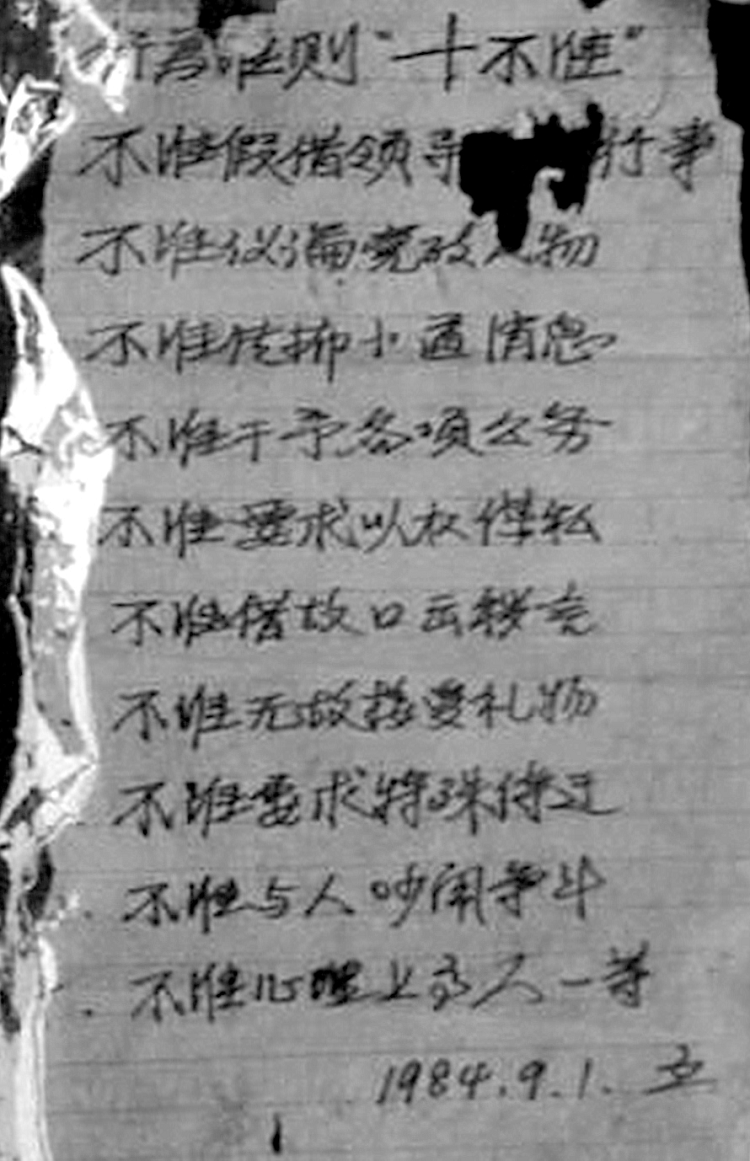 行为准则“十不准”
不准假借领导行事
不准议论党政人物
不准传播小道消息
不准干预各项公务
不准要求以权谋私
不准借故口出秽言
不准无故接受礼物
不准要求特殊待遇
不准与人吵闹争斗
不准心理上高人一等
1984.9.1. 立